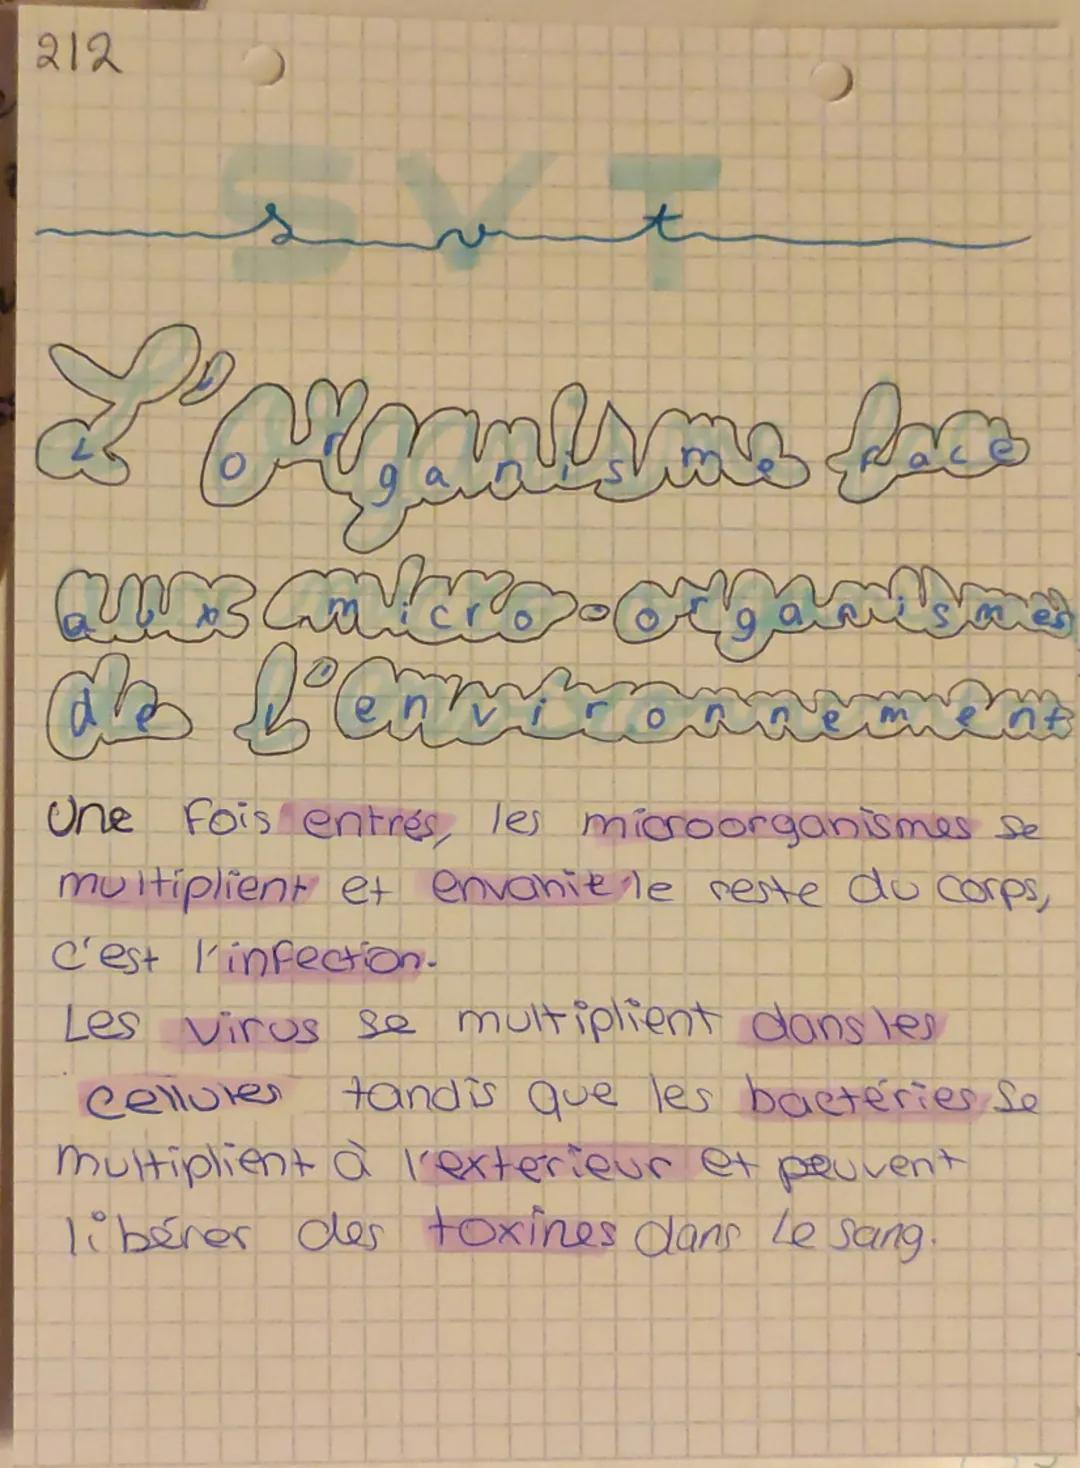 212
SVT
s v t
L'organisme face
aux micro-organismes
de l'environnement
Une fois entrés, les microorganismes se
multiplient et envahit le reste du corps,
c'est l'infection.
Les virus se multiplient dans les
cellules tandis que les bactéries se
multiplient à l'exterieur et peuvent
libérer des toxines dans le sang.